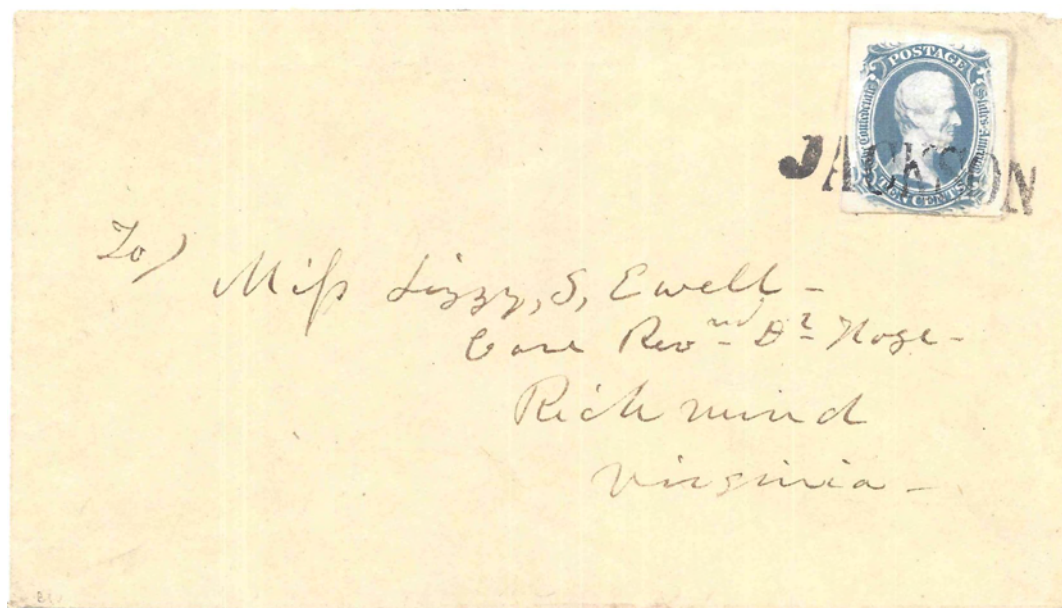 POSTAGE
The Confederate States of America
TEN CENTS
JACKSON
To/ Miss Lizzy, S, Ewell -
Care Revnd Dr Hoge -
Richmond
Virginia -